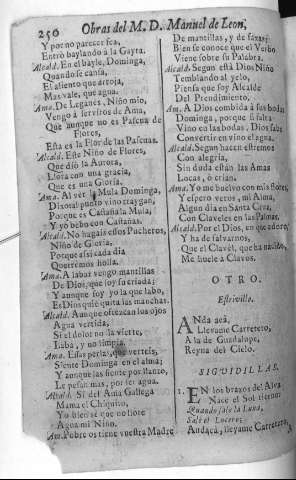 250 Obras del M. D. Manuel de Leon,
Y por no parecer fea,
Entrò baylando à la Gayta.
Alcald. En el bayle, Dominga,
Quando se cansa,
El aliento que arroja,
Mas vale, que agua.
Ama. De Leganès, Niño mio,
Vengo à serviros de Ama,
Que aunque no es Pascua de
Flores,
Esta es la Flor de las Pascuas.
Alcald. Este Niño de Flores,
Que diò la Aurora,
Llora con una gracia,
Que es una Gloria.
Ama. Al vèr la Mula Dominga,
Dixo al punto
Porque es Castaña la Mula,
Y yo bebo con Castañas.
Alcald. No hagais essos Pucheros,
Niño de Gloria,
Porque assi cada dia
Querèmos holla.
Ama. A labar vengo mantillas
De Dios, que soy su criada;
Y aunque soy yo la que labo,
Es Dios quiè quita las manchas.
Alcald. Aunque ofrezcan los ojos
Agua vertida,
Si el dolor no la vierte,
Laba, y no limpia.
Ama. Essas perlas, que verteis,
Siente Dominga en el alma;
Y aunque las siente por llanto,
Le pesàn mas, por ser agua.
Alcald. Si del Ama Gallega
Mama el Chiquito,
Yo bien sè que no llore
Agua mi Niño.
Am. Pobre os tiene vuestra Madre
De mantillas, y de faxas;
Bien se conoce que el Verbo
Viene sobre su Palabra.
Alcald. Segun està Dios Niño
Temblando al yelo,
Piensa que soy Alcalde
Del Prendimiento.
Am. A Dios combida à sus bodas
Dominga, porque si falta
Vino en las bodas, Dios sabe
Convertir en vino el agua.
Alcald. Segun hacen estremos
Con alegria,
Sin duda estàn las Amas
Locas, ò crian.
Ama. Yo me buelvo con mis flores,
Y espero veros, mi Alma,
Algun dia en Santa Cruz,
Con Claveles en las Palmas.
Alcald. Por el Dios, en que adoro,
Y ha de salvarnos,
Que el Clavèl, que ha nacido,
Me huele à Clavos.
OTRO.
Estrivillo.
Anda acà,
Llevame Carretero,
A la de Guadalupe,
Reyna del Cielo.
SIGUIDILLAS.
1. EN los brazos del Alva
Nace el Sol tierno:
Quando sale la Luna,
Sale el Lucero;
Anda cà, llevame Carretero,